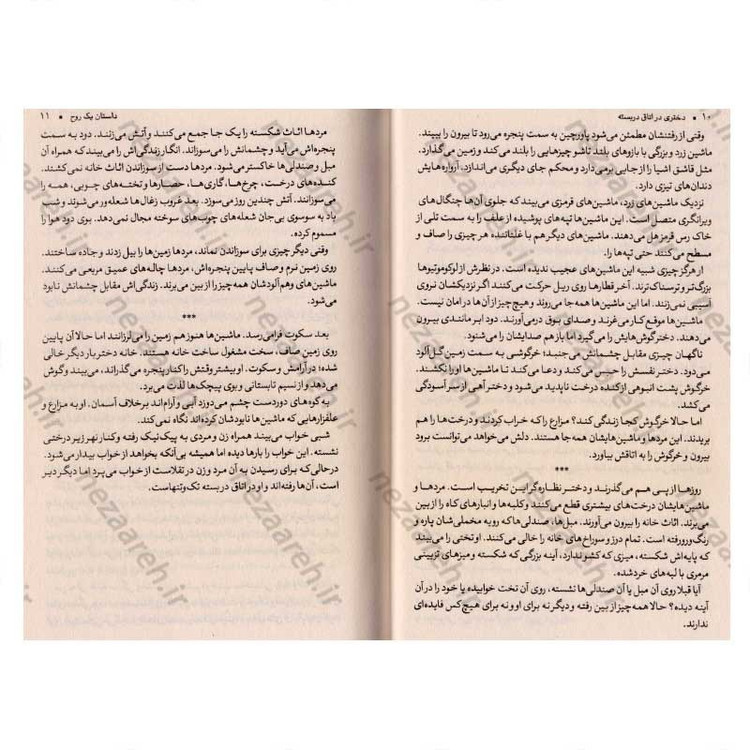 ۱۰ • دختری در اتاق دربسته
وقتی از رفتنشان مطمئن می‌شود پاورچین به سمت پنجره می‌رود تا بیرون را ببیند.
ماشین زرد و بزرگی با بازوهای بلند تاشو چیزهایی را بلند می‌کند و زمین می‌گذارد.
مثل قاشق اشیا را از جایی برمی‌دارد و محکم جای دیگری می‌اندازد. آرواره‌هایش
دندان‌های تیزی دارد.
نزدیک ماشین‌های زرد، ماشین‌های قرمزی می‌بیند که جلوی آن‌ها چنگال‌های
ویرانگری متصل است. این ماشین‌ها تپه‌های پوشیده از علف را به سمت تلی از
خاک رس قرمز هل می‌دهند. ماشین‌های دیگر هم با غلتاننده، هر چیزی را صاف و
مسطح می‌کنند حتی تپه‌ها را.
او هرگز چیزی شبیه این ماشین‌های عجیب ندیده است. در نظرش از لوکوموتیوها
بزرگ‌تر و ترسناک‌ترند. آخر قطارها روی ریل حرکت می‌کنند اگر نزدیکشان نروی
آسیبی نمی‌زنند. اما این ماشین‌ها همه جا می‌روند و هیچ چیز از آن‌ها در امان نیست.
ماشین‌ها موقع کار می‌غرند و صدای بوق درمی‌آورند. دود ابر مانندی بیرون
می‌دهند. دختر گوش‌هایش را می‌گیرد اما باز هم صدایشان را می‌شنود.
ناگهان چیزی مقابل چشمانش می‌جنبد؛ خرگوشی به سمت زمین گل‌آلود
می‌دود. دختر نفسش را حبس می‌کند و دعا می‌کند تا ماشین‌ها او را نکشند.
خرگوش پشت انبوهی از کنده درخت ناپدید می‌شود و دختر آهی از سر آسودگی
می‌کشد.
اما حالا خرگوش کجا زندگی کند؟ مزارع را که خراب کردند و درخت‌ها را هم
بریدند. این مردها و ماشین‌هایشان همه جا هستند. دلش می‌خواهد می‌توانست برود
بیرون و خرگوش را به اتاقش بیاورد.
***
روزها از پی هم می‌گذرند و دختر نظاره‌گر این تخریب است. مردها و
ماشین‌هایشان درخت‌های بیشتری قطع می‌کنند و کلبه‌ها و انبارهای کاه را از بین
می‌برند. اثاث خانه را بیرون می‌آورند. مبل‌ها، صندلی‌ها که رویه مخملی‌شان پاره و
رنگ‌ورورفته است. تمام درز و سوراخ‌های خانه را خالی می‌کنند. او تختی را می‌بیند
که پایه‌اش شکسته، میزی که کشو ندارد، آینه بزرگی که شکسته و میزهای تزیینی
مرمری با لبه‌های خردشده.
آیا قبلا روی آن مبل یا آن صندلی‌ها نشسته، روی آن تخت خوابیده یا خود را در آن
آینه دیده؟ حالا همه چیز از بین رفته و دیگر نه برای او و نه برای هیچ کس فایده‌ای
ندارند.
داستان یک روح • ۱۱
مردها اثاث شکسته را یک جا جمع می‌کنند و آتش می‌زنند. دود به سمت
پنجره‌اش می‌آید و چشمانش را می‌سوزاند. انگار زندگی‌اش را می‌بیند که همراه آن
مبل و صندلی‌ها خاکستر می‌شود. مردها دست از سوزاندن اثاث خانه نمی‌کشند.
کنده‌های درخت، چرخ‌ها، گاری‌ها، حصارها و تخته‌های چوبی، همه را
می‌سوزانند. آتش چندین روز می‌سوزد. بعد غروب زغال‌ها شعله‌ور می‌شوند و شب
باد به سوسوی بی‌جان شعله‌های چوب‌های سوخته مجال نمی‌دهد. بوی دود هوا را
مسموم کرده.
وقتی دیگر چیزی برای سوزاندن نماند، مردها زمین‌ها را بیل زدند و جاده ساختند.
روی زمین نرم و صاف پایین پنجره‌اش، مردها چاله‌های عمیق مربعی می‌کنند.
ماشین‌های وهم‌آلودشان همه چیز را از بین می‌برند. زندگی‌اش مقابل چشمانش نابود
می‌شود.
***
بعد سکوت فرامی‌رسد. ماشین‌ها هنوز هم زمین را می‌لرزانند اما حالا آن پایین
روی زمین صاف، سخت مشغول ساخت خانه هستند. خانه دختر بار دیگر خالی
شده؛ در آرامش و سکوت. او بیشتر وقتش را کنار پنجره می‌گذراند، می‌بیند و گوش
می‌دهد و از نسیم تابستانی و بوی پیچک‌ها لذت می‌برد.
به کوه‌های دوردست چشم می‌دوزد آبی و آرام‌اند برخلاف آسمان. او به مزارع و
علفزارهایی که ماشین‌ها نابودشان کرده‌اند نگاه نمی‌کند.
شبی خواب می‌بیند همراه زن و مردی به پیک‌نیک رفته و کنار نهر زیر درختی
نشسته. این خواب را بارها دیده اما همیشه بی‌آنکه بخواهد از خواب بیدار می‌شود.
درحالی‌که برای رسیدن به آن مرد و زن در تقلاست از خواب می‌پرد اما دیگر دیر
است، آن‌ها رفته‌اند و او در اتاق دربسته تک‌وتنهاست.
nezaareh.ir
nezaareh.ir
nezaareh.ir
nezaareh.ir
nezaareh.ir
nezaareh.ir